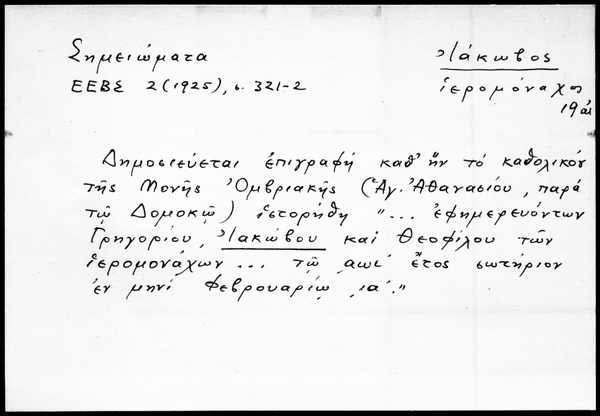 Σημειώματα
Ἰάκωβος
ΕΕΒΣ 2(1925), σ. 321-2
ἱερομόναχος
19 αἰ
Δημοσιεύεται ἐπιγραφή καθ' ἥν τό καθολικόν
τῆς Μονῆς Ὀμβριακῆς (Ἁγ. Ἀθανασίου, παρά
τῷ Δομοκῷ) ἱστορήθη "... ἐφημερευόντων
Γρηγορίου, Ἰακώβου καί Θεοφίλου τῶν
ἱερομονάχων ... τῷ ͵αωι' ἔτος σωτήριον
ἐν μηνί Φεβρουαρίῳ ια'."